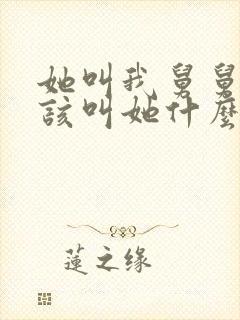 她叫我舅舅
該叫她什麼
蓮之缘